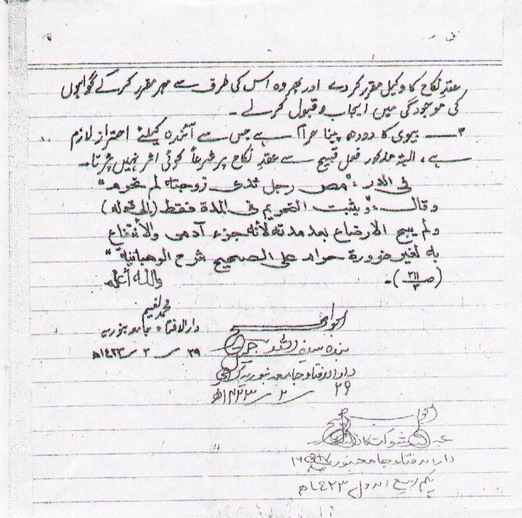 عقدِ نکاح کا وکیل مقرر کر دے اور پھر وہ اس کی طرف سے مہر مقرر کر کے گواہوں
کی موجودگی میں ایجاب و قبول کر لے۔
۲۔ بیوی کا دودھ پینا حرام ہے جس سے آئندہ کیلئے احتراز لازم
ہے، البتہ مذکور فعلِ قبیح سے عقدِ نکاح پر شرعاً کوئی اثر نہیں پڑتا۔
فی الدر: "مص رجل ثدی زوجتہ لم تحرم"
وقال: "ویثبت التحریم فی المدۃ فقط (الی قولہ)
ولم یبح الارضاع بعد مدتہ لانہ جزء آدمی والانتفاع
بہ لغیر ضرورۃ حرام علی الصحیح شرح الوھبانیۃ"
واللہ أعلم
محمد نعیم
دارالافتاء جامعہ بنوریہ
۲۹ / ۲ / ۱۴۲۳ھ
الجواب صحیح
دارالافتاء جامعہ بنوریہ کراچی
۲۹ / ۲ / ۱۴۲۳ھ
الجواب صحیح
دارالافتاء جامعہ بنوریہ
یکم ربیع الاول ۱۴۲۳ھ